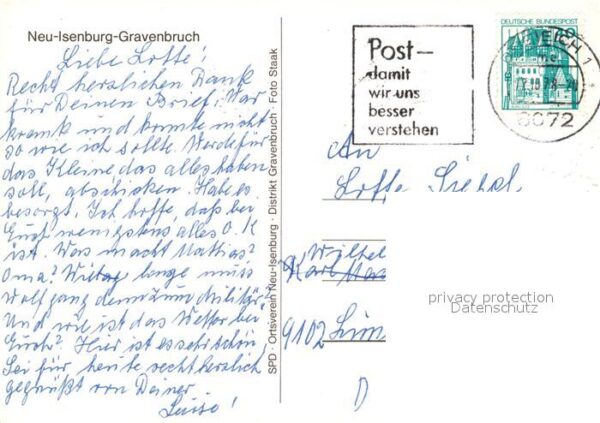 Neu-Isenburg-Gravenbruch
Liebe Lotte!
Recht herzlichen Dank
für Deinen Brief. War
krank und konnte nicht
so wie ich sollte. Werde für
das Kleine das alles haben
soll, abschicken. Habe es
besorgt. Ich hoffe, daß bei
Euch wenigstens alles O.K
ist. Was macht Mathias?
Oma? Wie lange muss
Wolfgang denn zum Militär?
Und wie ist das Wetter bei
Euch? Hier ist es sehr schön.
Sei für heute recht herzlich
gegrüßt von Deiner
Luise!
SPD · Ortsverein Neu-Isenburg · Distrikt Gravenbruch · Foto Staak
Post–
damit
wir uns
besser
verstehen
DEUTSCHE BUNDESPOST
EICH 1
78
6072
An
Lotte
Wilhel
Karl
9102 Lim
D
privacy protection
Datenschutz